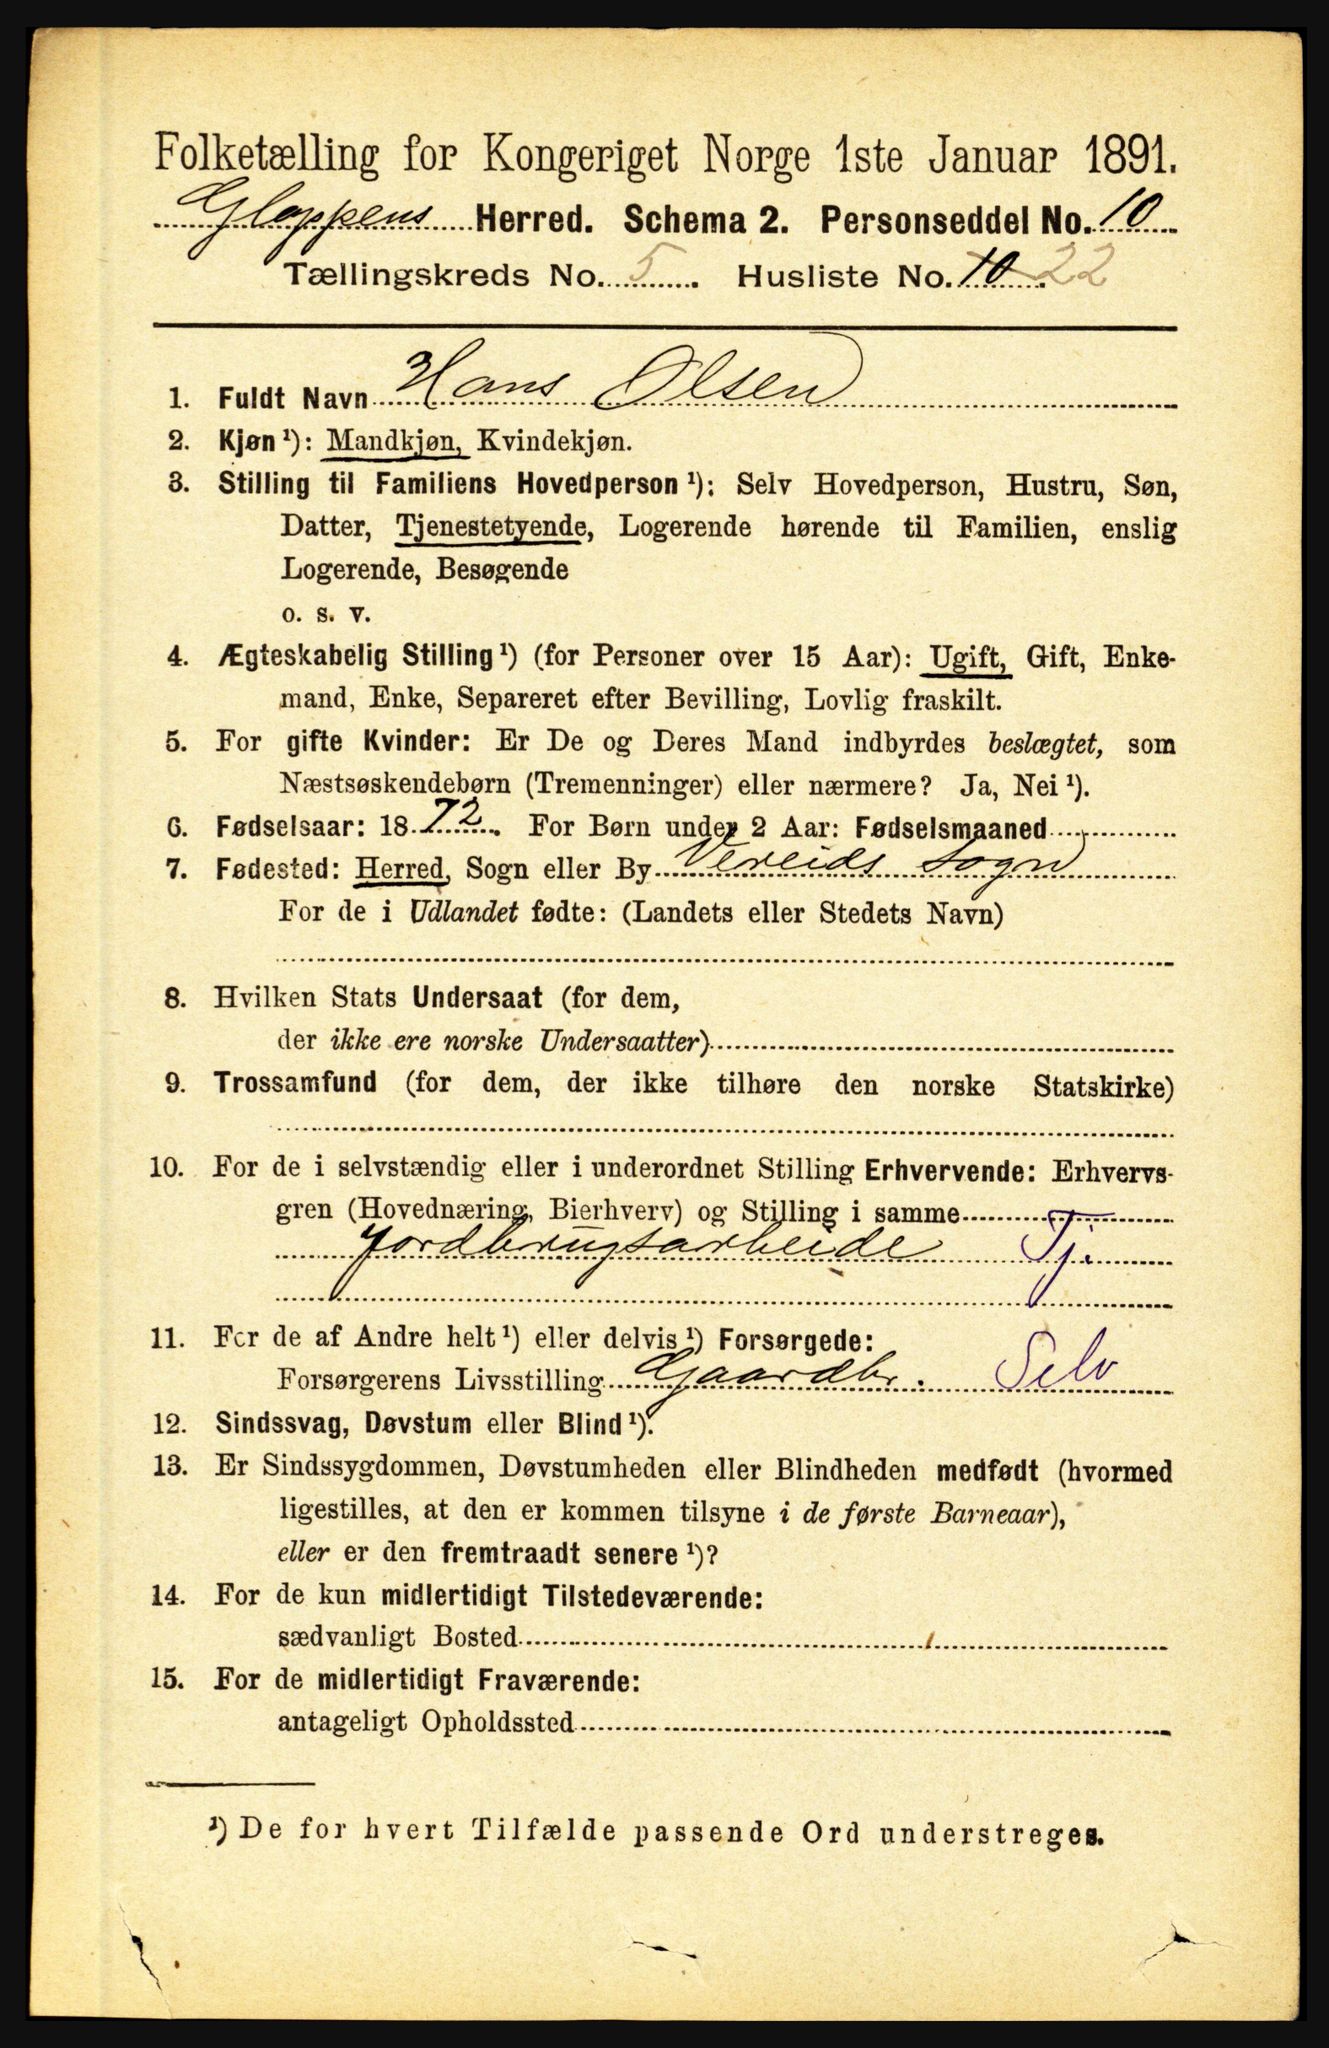 Folketælling for Kongeriget Norge 1ste Januar 1891.
Gloppens Herred. Schema 2. Personseddel No. 10
Tællingskreds No. 5. Husliste No. 10 22
1. Fuldt Navn Hans Olsen
2. Kjøn ¹): Mandkjøn, Kvindekjøn.
3. Stilling til Familiens Hovedperson ¹): Selv Hovedperson, Hustru, Søn,
Datter, Tjenestetyende, Logerende hørende til Familien, enslig
Logerende, Besøgende
o. s. v.
4. Ægteskabelig Stilling ¹) (for Personer over 15 Aar): Ugift, Gift, Enke-
mand, Enke, Separeret efter Bevilling, Lovlig fraskilt.
5. For gifte Kvinder: Er De og Deres Mand indbyrdes beslægtet, som
Næstsøskendebørn (Tremenninger) eller nærmere? Ja, Nei ¹).
6. Fødselsaar: 1872. For Børn under 2 Aar: Fødselsmaaned
7. Fødested: Herred, Sogn eller By Vereids Sogn
For de i Udlandet fødte: (Landets eller Stedets Navn)
8. Hvilken Stats Undersaat (for dem,
der ikke ere norske Undersaatter)
9. Trossamfund (for dem, der ikke tilhøre den norske Statskirke)
10. For de i selvstændig eller i underordnet Stilling Erhvervende: Erhvervs-
gren (Hovednæring, Bierhverv) og Stilling i samme
Jordbrugsarbeide Tj.
11. For de af Andre helt ¹) eller delvis ¹) Forsørgede:
Forsørgerens Livsstilling Gaardbr. Selv
12. Sindssvag, Døvstum eller Blind ¹).
13. Er Sindssygdommen, Døvstumheden eller Blindheden medfødt (hvormed
ligestilles, at den er kommen tilsyne i de første Barneaar),
eller er den fremtraadt senere ¹)?
14. For de kun midlertidigt Tilstedeværende:
sædvanligt Bosted
15. For de midlertidigt Fraværende:
antageligt Opholdssted
¹) De for hvert Tilfælde passende Ord understreges.